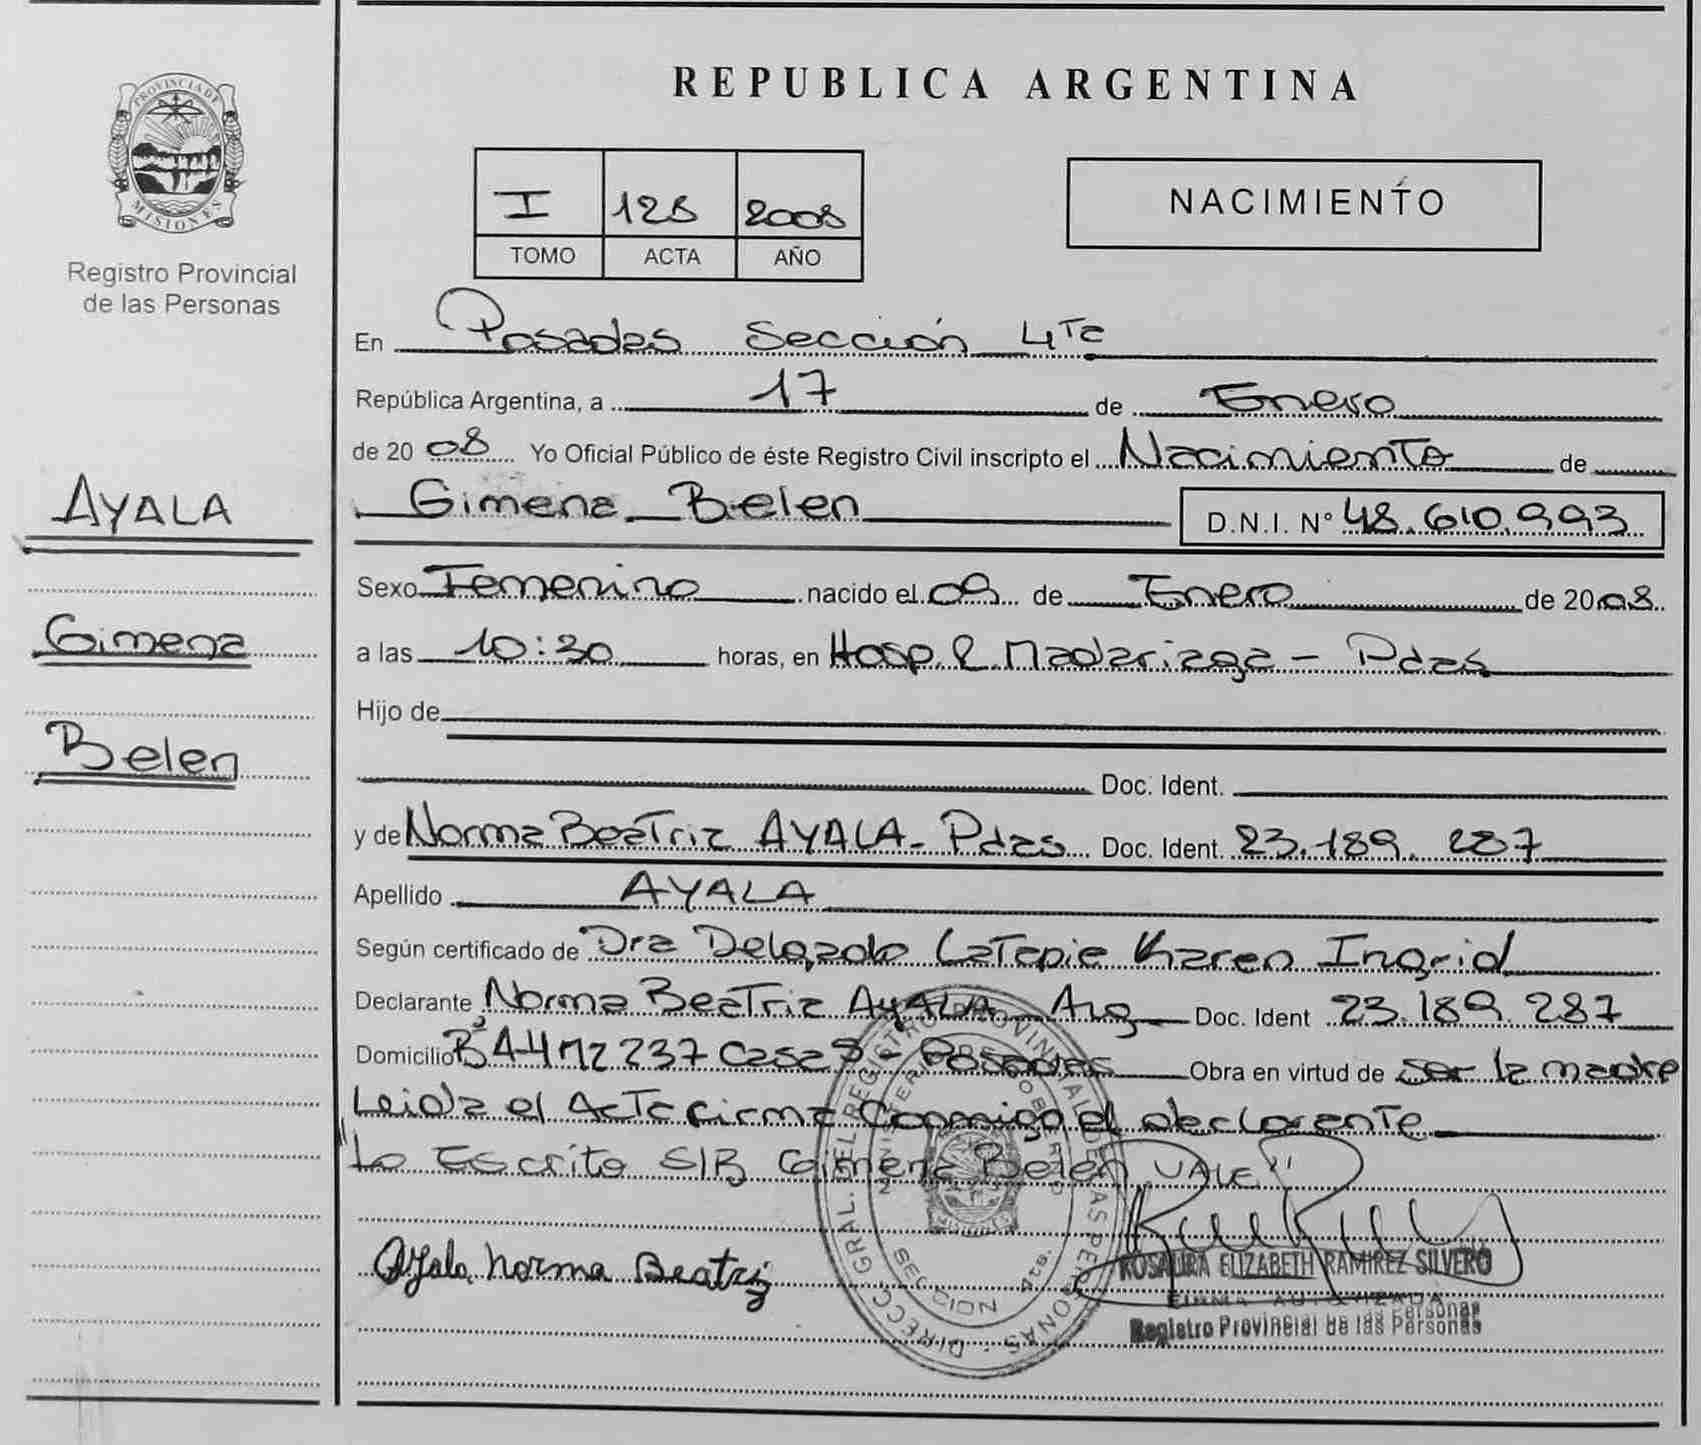 PROVINCIA DE
MISIONES
Registro Provincial
de las Personas
AYALA
Gimena
Belen
REPUBLICA ARGENTINA
I 128 2008
TOMO ACTA AÑO
NACIMIENTO
En Posadas Sección 4ta
República Argentina, a 17 de Enero
de 2008 Yo Oficial Público de éste Registro Civil inscripto el Nacimiento de
Gimena Belen D.N.I. Nº 48.610.993
Sexo Femenino nacido el 09 de Enero de 2008
a las 10:30 horas, en Hosp. R. Madariaga - Pdas
Hijo de
Doc. Ident.
y de Norma Beatriz AYALA - Pdas Doc. Ident. 23.189.287
Apellido AYALA
Según certificado de Dra Delgado Latapie Karen Ingrid
Declarante Norma Beatriz AyALA - Arg Doc. Ident 23.189.287
Domicilio Bº A4 Mz 237 Casa - Posadas Obra en virtud de ser la madre
Leida el Acta firma Conmigo el declarante
"Lo Escrito S/B Gimena Belen VALE"
Ayala Norma Beatriz
ROSAURA ELIZABETH RAMIREZ SILVERO
FIRMA AUTORIZADA
Registro Provincial de las Personas
DIRECC. GRAL. DEL REGISTRO PROVINCIAL DE LAS PERSONAS